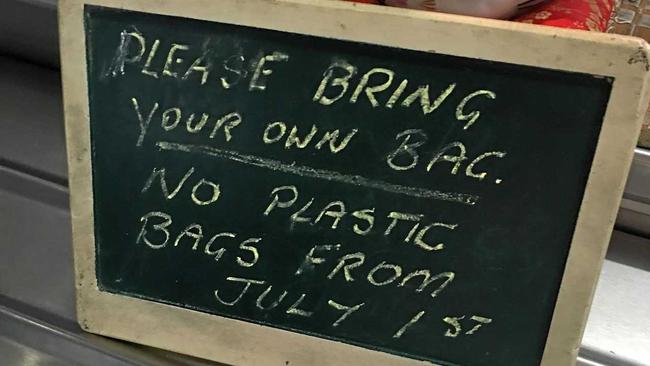 PLEASE BRING
YOUR OWN BAG.
NO PLASTIC
BAGS FROM
JULY 1ST